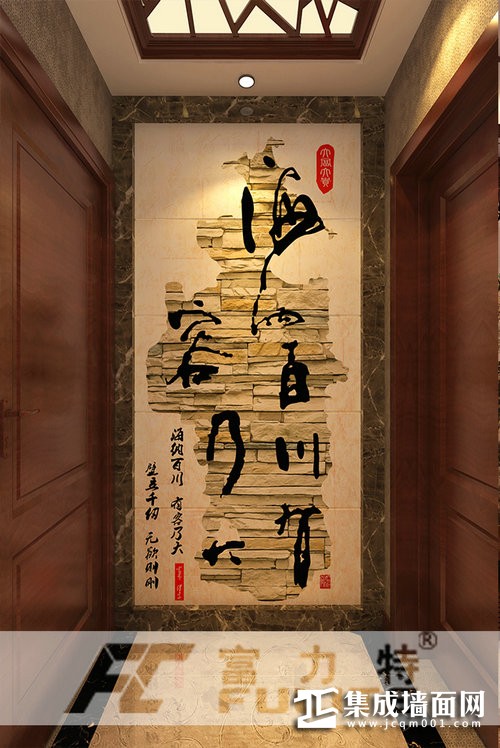 海纳百川有
容乃大
海纳百川 有容乃大
壁立千仞 无欲则刚
富力特®
集成墙面网
www.jcqm001.com